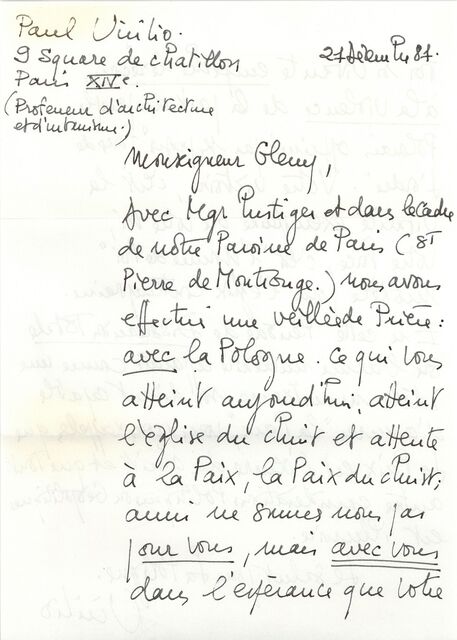 Paul Virilio.
9 Square de Chatillon
21 Décembre 81.
Paris XIVe.
(Professeur d'architecture
et d'urbanisme.)
Monseigneur Glemp,
Avec Mgr Lustiger et dans le cadre
de notre Paroisse de Paris (St
Pierre de Montrouge.) nous avons
effectué une veillée de Prière:
avec la Pologne. Ce qui vous
atteint aujourd'hui, atteint
l'église du Christ et attente
à la Paix, la Paix du Christ;
aussi ne sommes nous pas
pour vous, mais avec vous
dans l'espérance que votre